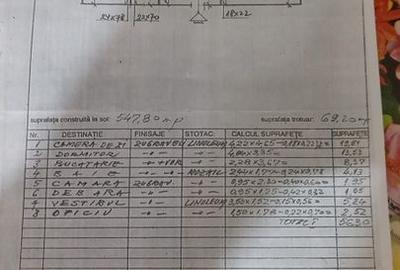 21×78 22×70 18×22
suprafața construită la sol: 547,80 mp suprafața trotuar: 69,20 mp
Nr. DESTINAȚIE FINISAJE STOTAC. CALCUL SUPRAFEȚE SUPRAFEȚE
1 CAMERA DE ZI ZUGRAVELI LINOLEUM 4,22×4,65-0,18×0,22/2=
2 DORMITOR -"- -"- 4,04×3,35=
3 BUCATARIE -"- -"- 2,28×3,67= 8,37
4 BAIE -"- MOZAIC 2,44×1,77-0,24×0,78 4,13
5 CAMARA ZUGRAV. -"- 0,95×2,20-0,40×0,60= 1,95
6 DEBARA -"- -"- 0,95×1,25-0,42×0,32
7 VESTIBUL -"- LINOLEUM 3,50×1,52-0,15×0,56= 5,24
8 OFICIU -"- -"- 1,50×1,78-0,22×0,70= 2,52
TOTAL 56,30